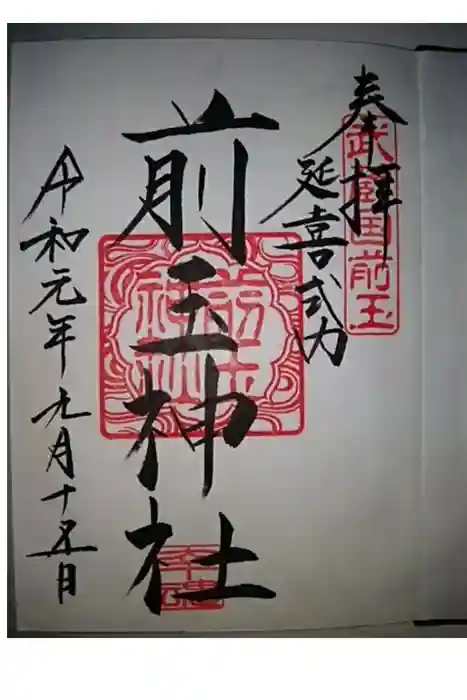 奉拝
武蔵国前玉
延喜式内
前玉神社
令和元年九月十五日